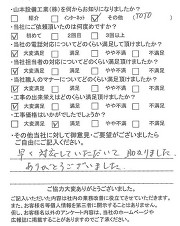 ・山本設備工業(株)を何からお知りになりましたか?
□紹介 □インターネット ☑その他(TOTO)
・当社にご依頼頂いたのは何度めですか?
☑初めて □2回目 □3回以上
・当社の電話対応についてどのくらい満足頂けましたか?
□大変満足 □満足 □やや不満 □不満足
・当社担当者の対応についてどのくらい満足頂けましたか?
□満足 □やや不満 □不満足
・当社職人のマナーについてどのくらい満足頂けましたか?
□満足 □やや不満 □不満足
・工事の出来栄えはどのくらい満足頂けましたか?
□満足 □やや不満 □不満足
・工事価格はいかがでしたでしょうか?
□満足 □やや不満 □不満足
・その他当社に対して御意見・ご要望がございましたら
ご自由にご記入ください。
早く対応していただいて助かりました。
ありがとうございました。
ご協力大変ありがとうございました。
ご記入いただいた内容は社内の業務改善に役立てさせていただきます。
また、お客様等個人情報を第三者に開示することはありません。
但し、お客様以外のアンケート内容は、当社のホームページや
広報誌に掲載することがありますのでご了承下さい。